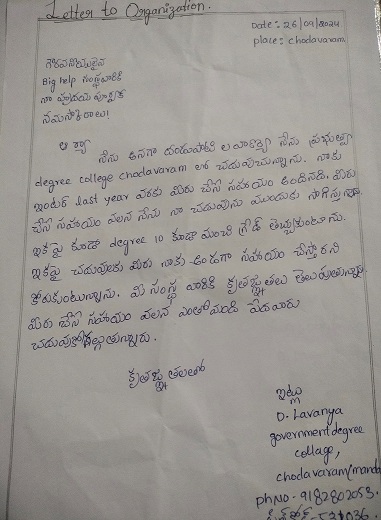 Letter to Organization.
Date: 26/09/2024
place: chodavaram
గౌరవనీయులైన
Big help సంస్థవారికి
నా హృదయ పూర్వక
నమస్కారాలు!
ఆర్యా
నేను అనగా దండుపాటి లావణ్య నేను ప్రభుత్వ
degree college chodavaram లో చదువుచున్నాను. నాకు
ఇంటర్ last year వరకు మీరు చేసే సహాయం అందినది. మీరు
చేసే సహాయం వలన నేను నా చదువును ముందుకు సాగిస్తున్నా
ఇకపై కూడా degree lo కూడా మంచి గ్రేడ్ తెచ్చుకుంటాను.
ఇకపై చదువులకు మీరు నాకు అండగా సహాయం చేస్తారని
కోరుకుంటున్నాను. మీ సంస్థ వారికి కృతజ్ఞతలు తెలుపుతున్నా
మీరు చేసే సహాయం వలన ఎంతోమంది పేదవారు
చదువుకోగల్గుతున్నారు.
కృతజ్ఞతలతో
ఇట్లు
D. Lavanya
government degree
collage,
chodavaram(manda
phNo. 9182802053.